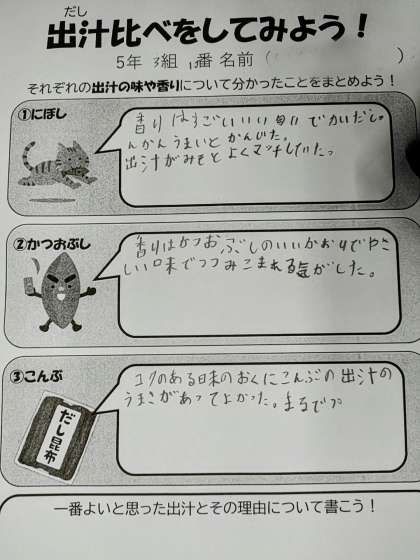 だし
出汁比べをしてみよう！
5年 3組 1番 名前（ ）
それぞれの出汁の味や香りについて分かったことをまとめよう！
①にぼし
香りはすごいいい匂いで
んかんうまいとかんじた。
出汁がみそとよくマッチしていた。
②かつおぶし
香りはかつおぶしのいいかおりでやさ
しい味でつつみこまれる気がした。
③こんぶ
コクのある味のおくにこんぶの出汁の
うまさがあってよかった。まるで
だし昆布
一番よいと思った出汁とその理由について書こう！